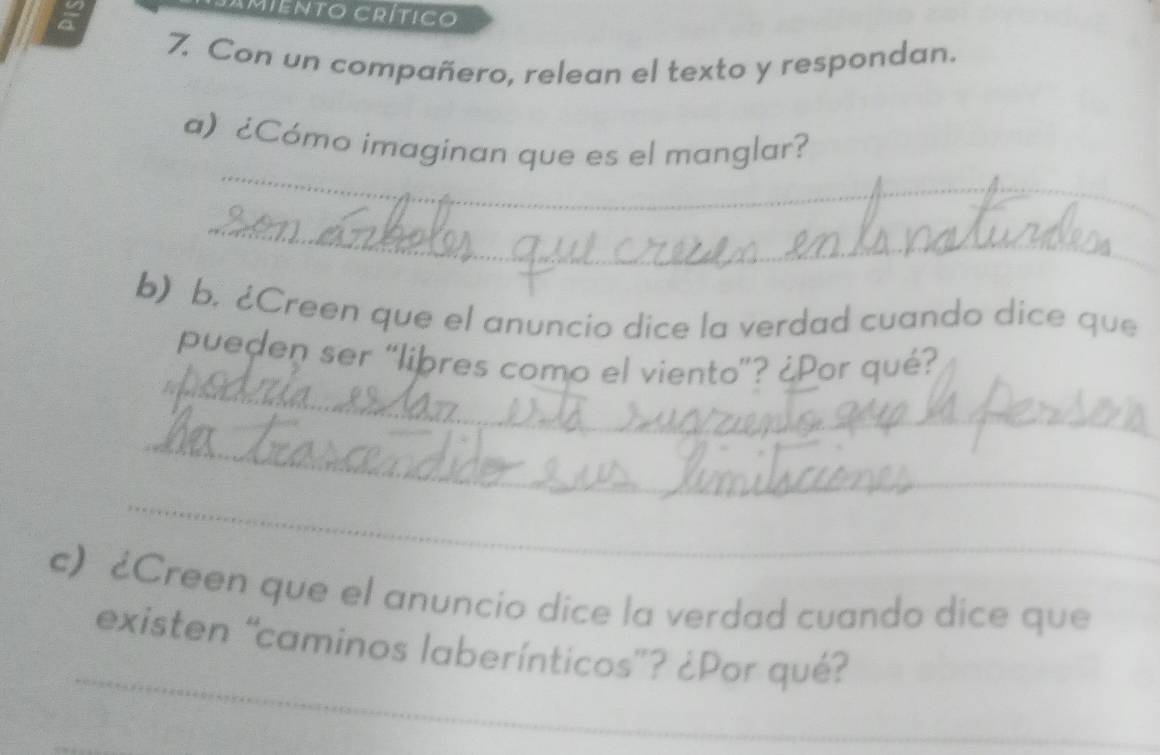 CRÍTICO
7. Con un compañero, relean el texto y respondan.
a) ¿Cómo imaginan que es el manglar?
son árboles que crecen en la naturaleza
b) b. ¿Creen que el anuncio dice la verdad cuando dice que
pueden ser "libres como el viento"? ¿Por qué?
podría que la persona
ha trascendido sus limitaciones
c) ¿Creen que el anuncio dice la verdad cuando dice que
existen "caminos laberínticos"? ¿Por qué?